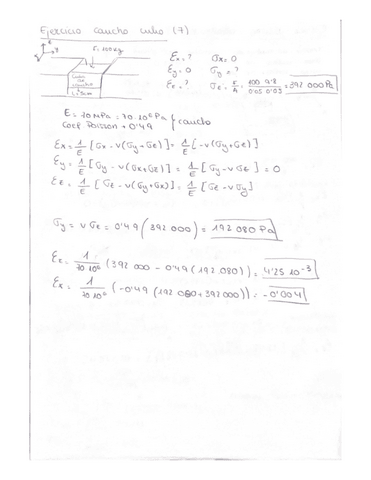 Ejercicio caucho cubo (7)
F: 100 kg
Cubo de caucho
L=5cm
Ex = ? σx = 0
Ey = 0 σy = ?
Ez = ? σz = F/A = 100 · 9'8 / 0'05 · 0'05 = 392 000 Pa
E = 70 MPa = 70·10⁶ Pa } caucho
Coef Poisson = 0'49
Ex = 1/E [σx - ν(σy+σz)] = 1/E [-ν(σy+σz)]
Ey = 1/E [σy - ν(σx+σz)] = 1/E [σy - ν σz] = 0
Ez = 1/E [σz - ν(σy+σx)] = 1/E [σz - ν σy]
σy = ν σz = 0'49 (392 000) = 192 080 Pa
Ez = 1/70 10⁶ (392 000 - 0'49 (192 080)) = 4'25 10⁻³
Ex = 1/70 10⁶ (-0'49 (192 080 + 392 000)) = -0'004